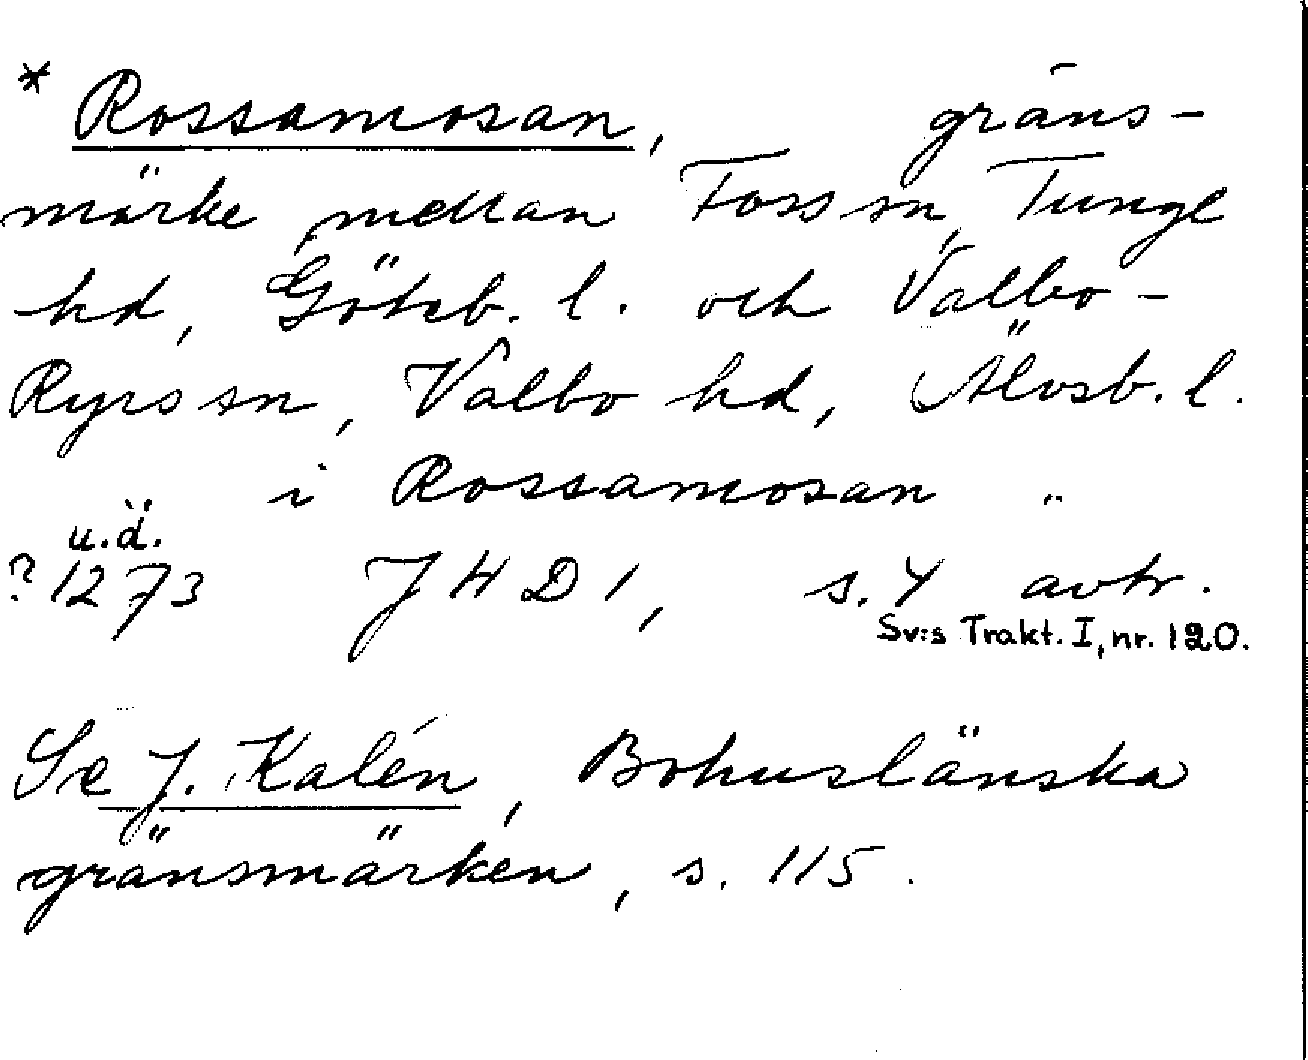 * Rossamosan, gräns-
märke mellan Foss sn, Tunge
hd, Göteb. l. och Valbo-
Ryrs sn, Valbo hd, Älvsb. l.
i Rossamosan "
u.d.
? 1273 JHD 1, s. 4 avtr.
Sv:s Trakt. I, nr. 120.
Se J. Kalén, Bohuslänska
gränsmärken, s. 115.